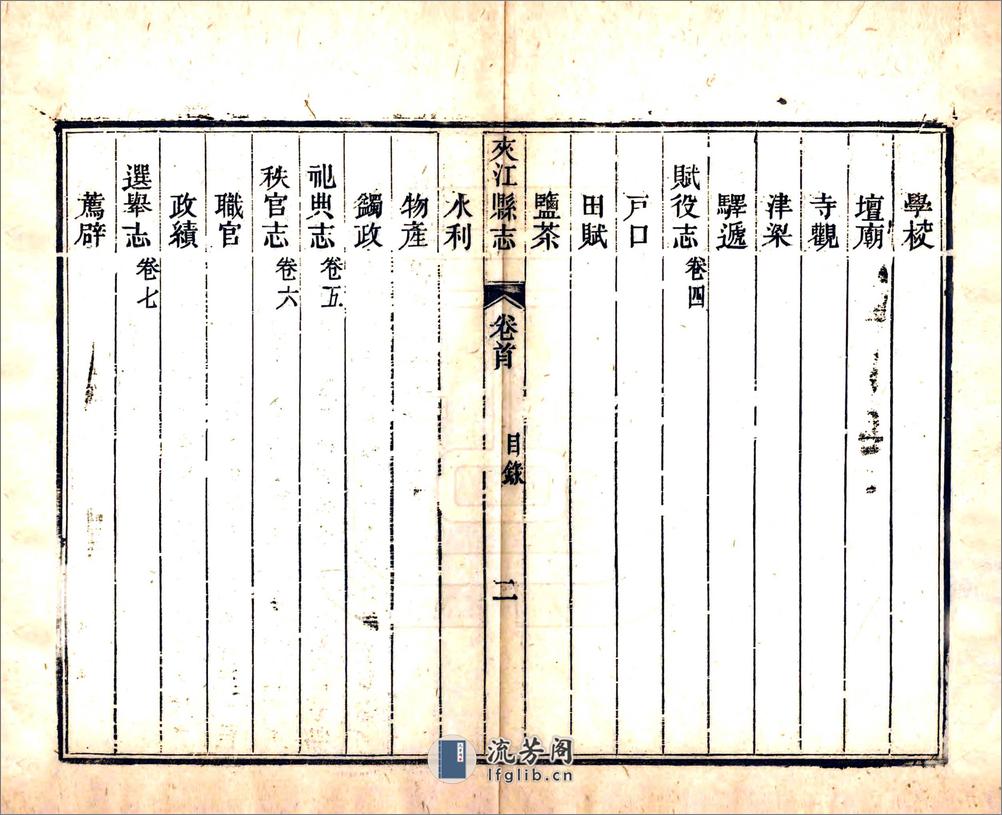 學校
壇廟
寺觀
津梁
驛遞
賦役志 卷四
戸口
田賦
鹽茶
夾江縣志 卷首 目錄 二
水利
物產
蠲政
祀典志 卷五
秩官志 卷六
職官
政績
選舉志 卷七
薦辟
流芳阁
lfglib.cn